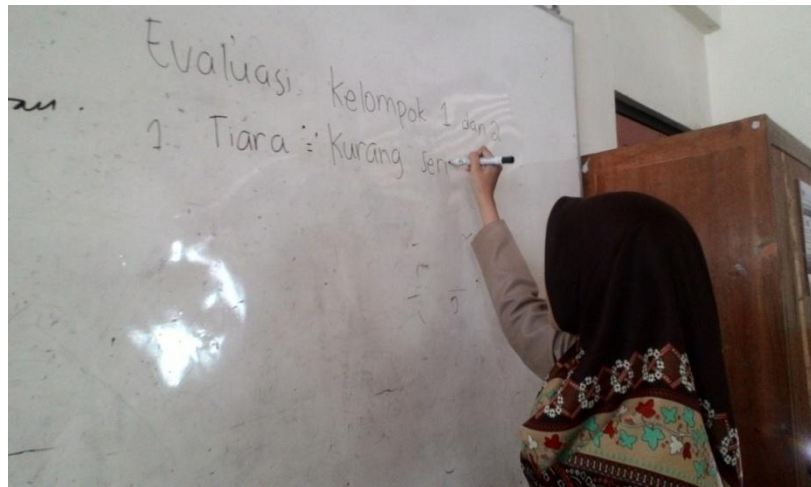 Evaluasi Kelompok 1 dan 2
1. Tiara : Kurang